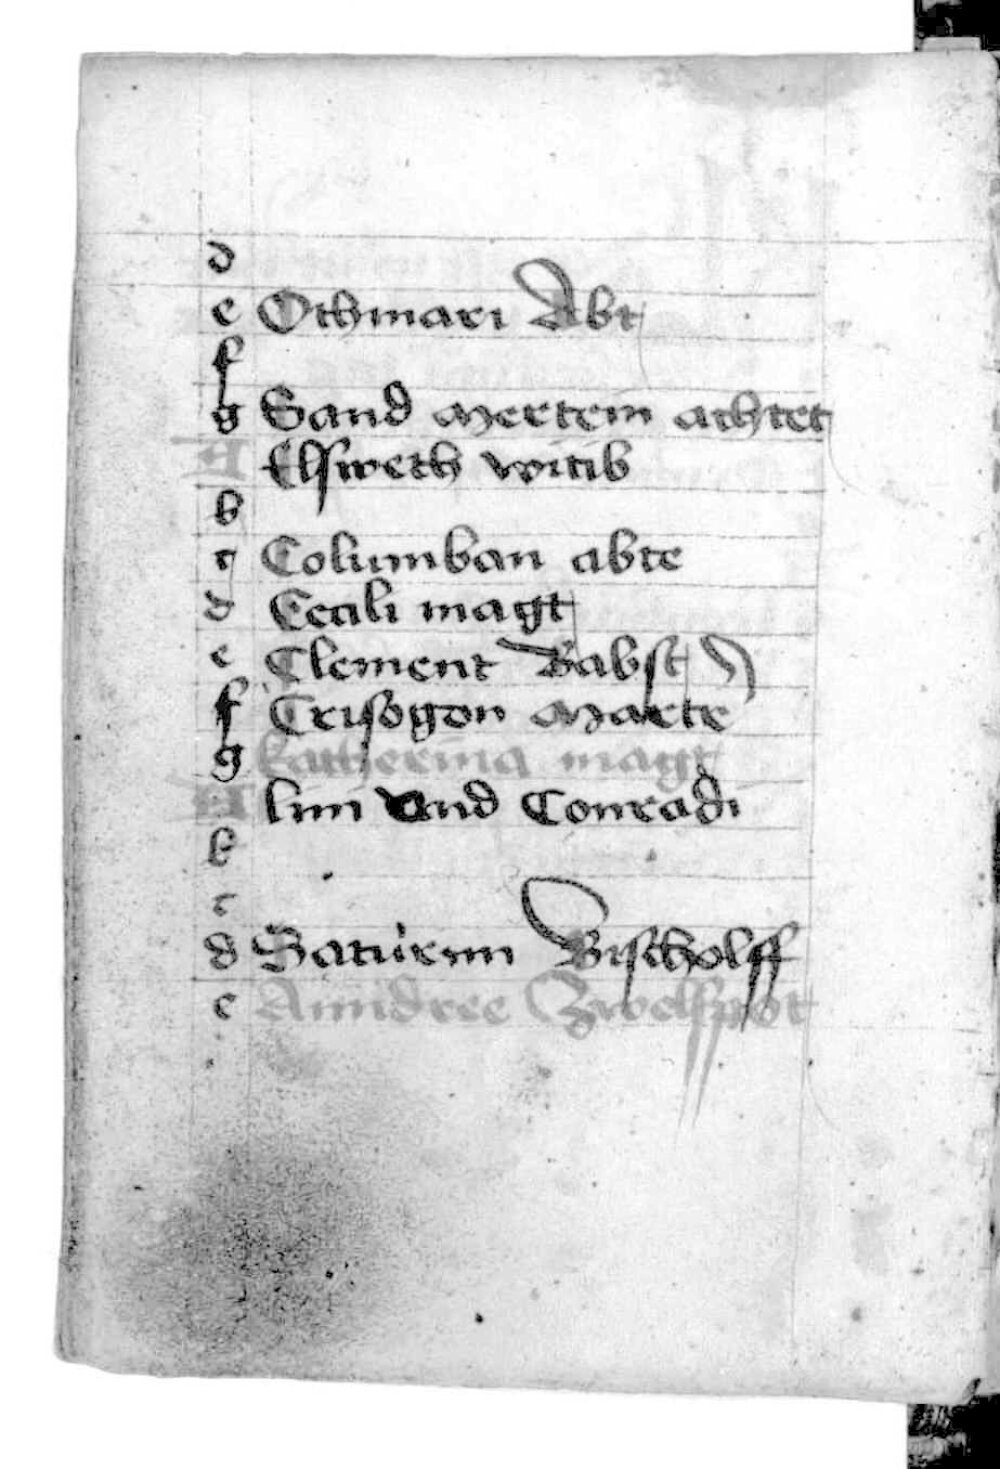 d
e Othmari Abt
f
g Sand Mertein achtet
A Elsweth witib
b
c Columban abte
d Cecili magt
e Clement Babst
f Crisogon Marte
g Katherina magt
A lini vnd Conradi
b
c
d Saturnin Bischolff
e Anndree Zwelfpot